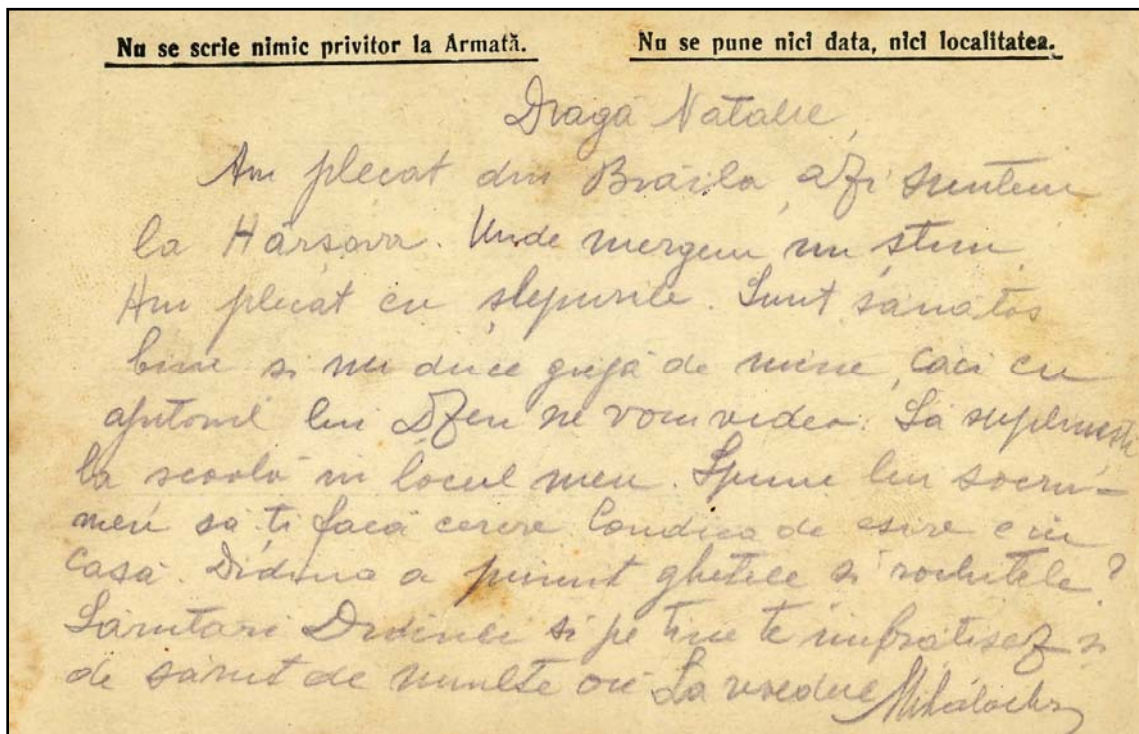 Nu se scrie nimic privitor la Armată. Nu se pune nici data, nici localitatea.
Dragă Natalie,
Am plecat din Brăila, azi suntem
la Hârșova. Unde mergem nu știm.
Am plecat cu șlepurile. Sunt sănătos
bine si nu duce grijă de mine, căci cu
ajutorul lui Dzeu ne vom vedea. Să suplinești
la scoală in locul meu. Spune lui socru-
meu să ti facă cerere Condica de esire e in
casă. Didina a primit ghetele si rochitele?
Sărutari Didinei si pe tine te imbratisez si
te sărut de multe ori La vedere Mihalache